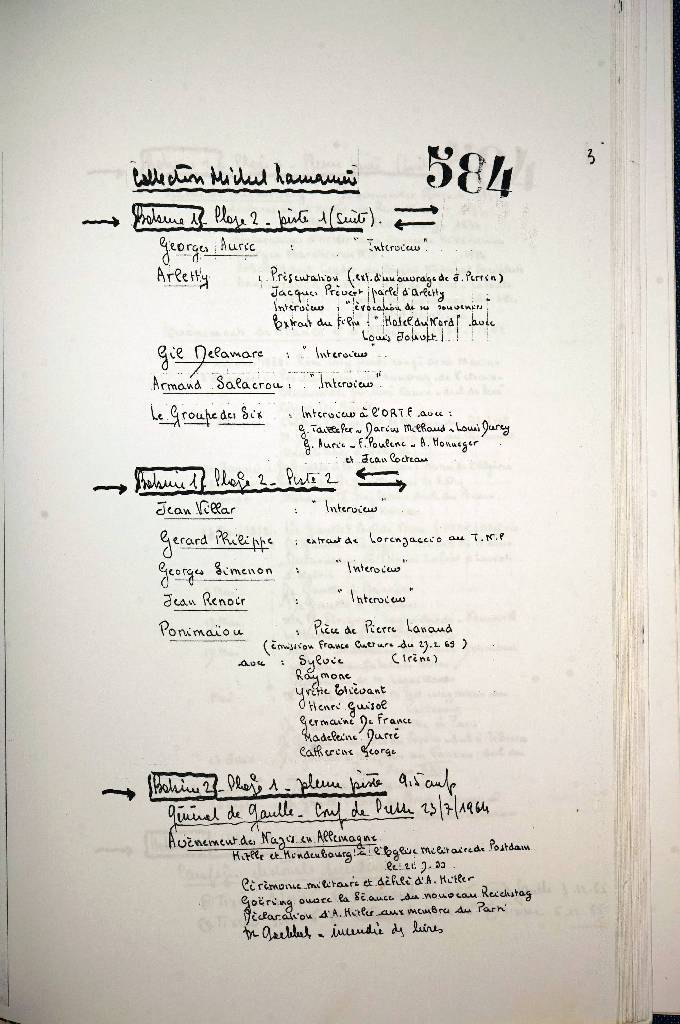 3
584
Collection Michel
Bobine 1 - Plage 2 - piste 1 (suite).
Georges Auric : "Interview"
Arletty : Présentation (ext. d'un ouvrage de J. Perrin)
Jacques Prévert parle d'Arletty
Interview : "évocation de ses souvenirs"
Extrait du film : "Hotel du Nord" avec
Louis Jouvet
Gil Delamare : "Interview"
Armand Salacrou : "Interview"
Le Groupe des Six : Interview à l'O.R.T.F avec :
G. Tailefer - Darius Milhaud - Louis Durey
G. Auric - F. Poulenc - A. Honneger
et Jean Cocteau
Bobine 1 - Plage 2 - Piste 2
Jean Villar : "Interview"
Gerard Philippe : extrait de Lorenzaccio au T.N.P
Georges Simenon : "Interview"
Jean Renoir : "Interview"
Ponimaïou : Pièce de Pierre Lanaud
(émission France Culture du 23.2.69)
avec : Sylvie (Irène)
Raymone
Yvette Etiévant
Henri Guisol
Germaine De France
Madeleine Durré
Catherine George
Bobine 2 - Plage 1 - pleine piste 9,5 cm/s
Général de Gaulle - Conf de Presse 23/7/1964
Avènement des Nazis en Allemagne
Hitler et Hindenbourg à l'Eglise Militaire de Postdam
le 21.3.33
Cérémonie militaire et défilé d'A. Hitler
Goëring ouvre la Séance du nouveau Reichstag
Déclaration d'A. Hitler aux membres du Parti
Dr Goebbels - incendie des livres